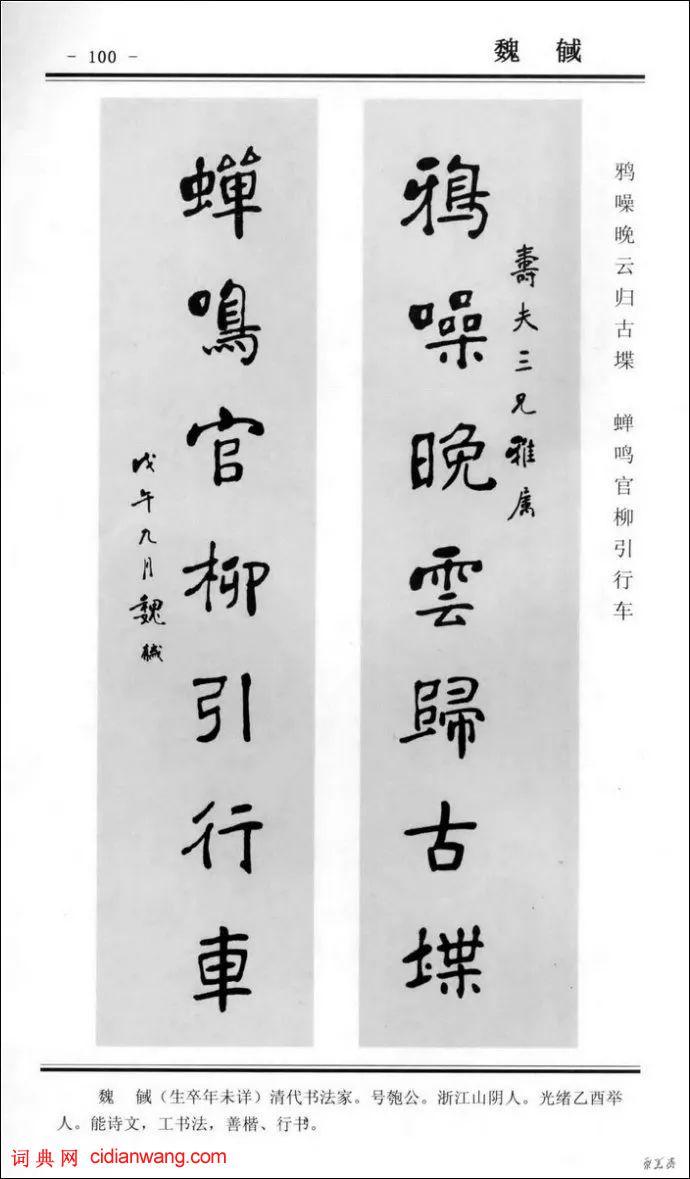 - 100 -
魏 戫
鸦噪晚云归古堞 蝉鸣官柳引行车
壽夫三兄雅属
鴉噪晚雲歸古堞
蟬鳴官柳引行車
戊午九月魏戫
魏 戫（生卒年未详）清代书法家。号匏公。浙江山阴人。光绪乙酉举
人。能诗文，工书法，善楷、行书。
词典网 cidianwang.com